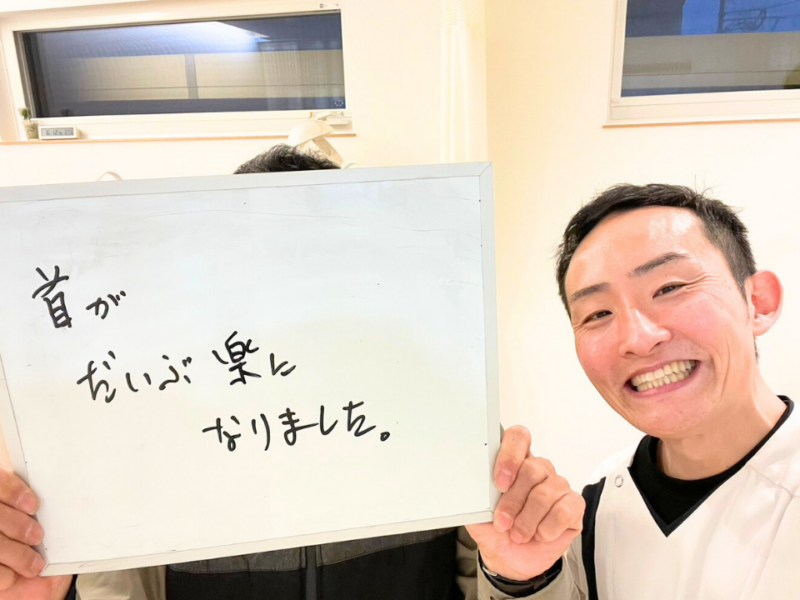 首が
だいぶ楽に
なりました。